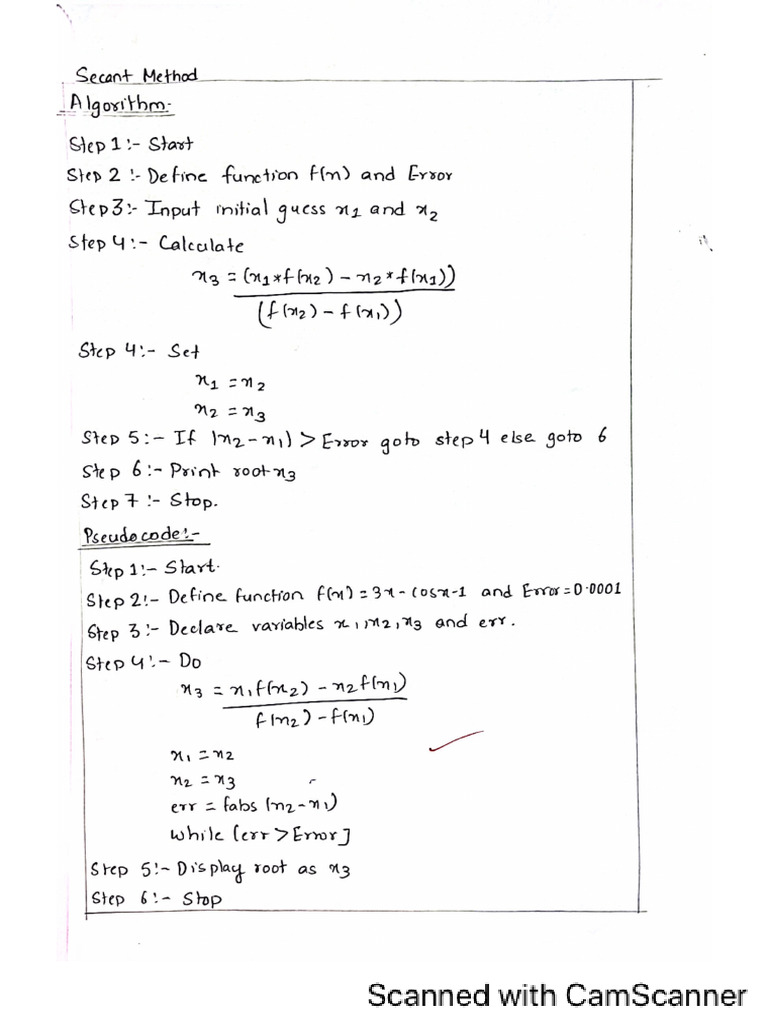 Secant Method
Algorithm:-
Step 1:- Start
Step 2:- Define function f(x) and Error
Step 3:- Input initial guess x1 and x2
Step 4:- Calculate
x3 = (x1*f(x2) - x2*f(x1))
(f(x2) - f(x1))
Step 4:- Set
x1 = x2
x2 = x3
Step 5:- If |x2-x1| > Error goto step 4 else goto 6
Step 6:- Print root x3
Step 7:- Stop.
Pseudocode:-
Step 1:- Start.
Step 2:- Define function f(x) = 3x - cosx-1 and Error=0.0001
Step 3:- Declare variables x1, x2, x3 and err.
Step 4:- Do
x3 = x1f(x2) - x2f(x1)
f(x2) - f(x1)
x1 = x2
x2 = x3
err = fabs (x2-x1)
while [err > Error]
Step 5:- Display root as x3
Step 6:- Stop
Scanned with CamScanner